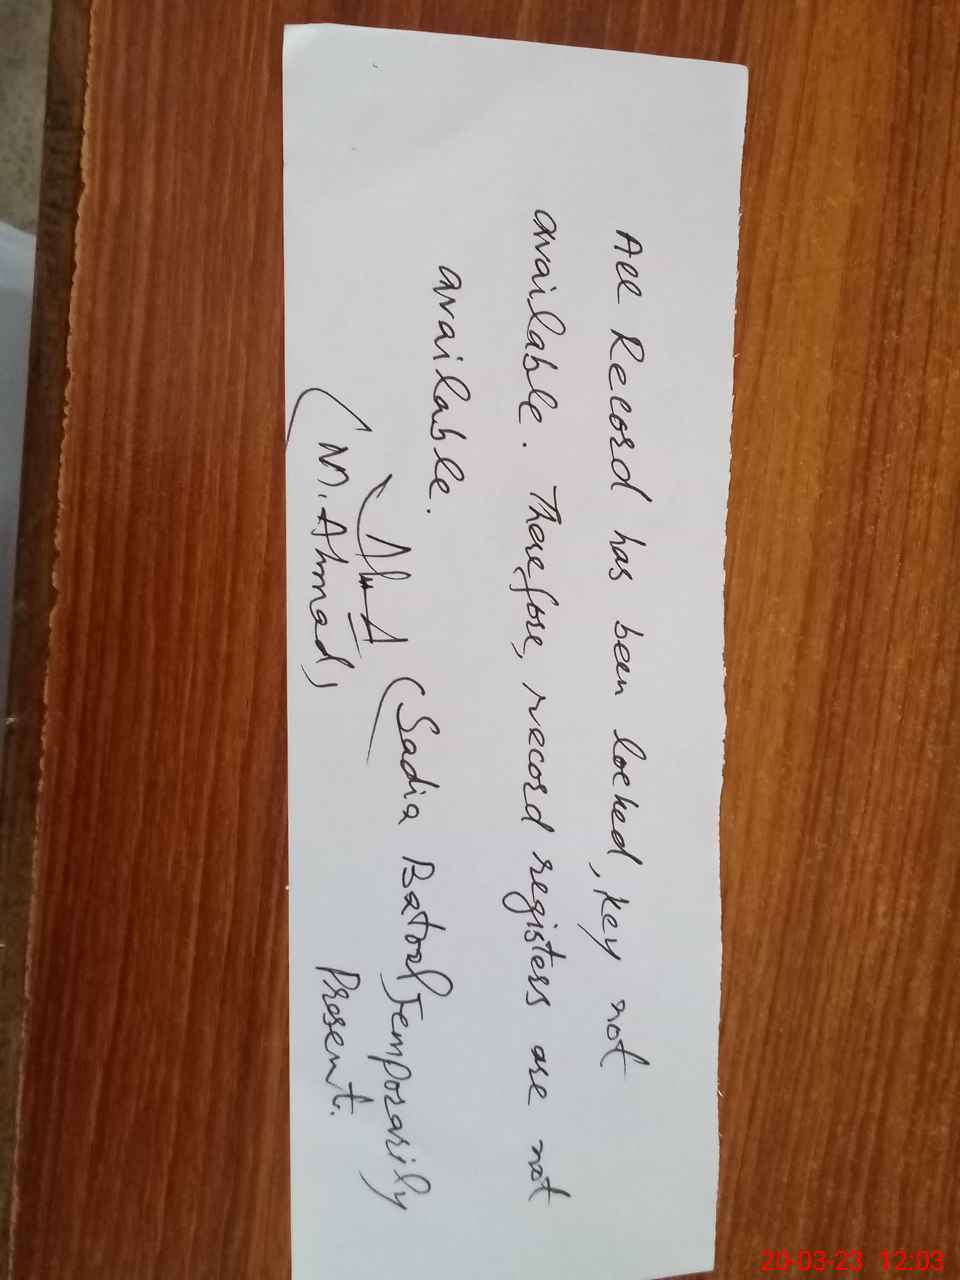 All Record has been locked, key not
available. Therefore, record registers are not
available.
(Sadia Batool) Temporarily
Present.
(M. Ahmad)
20-03-23 12:03